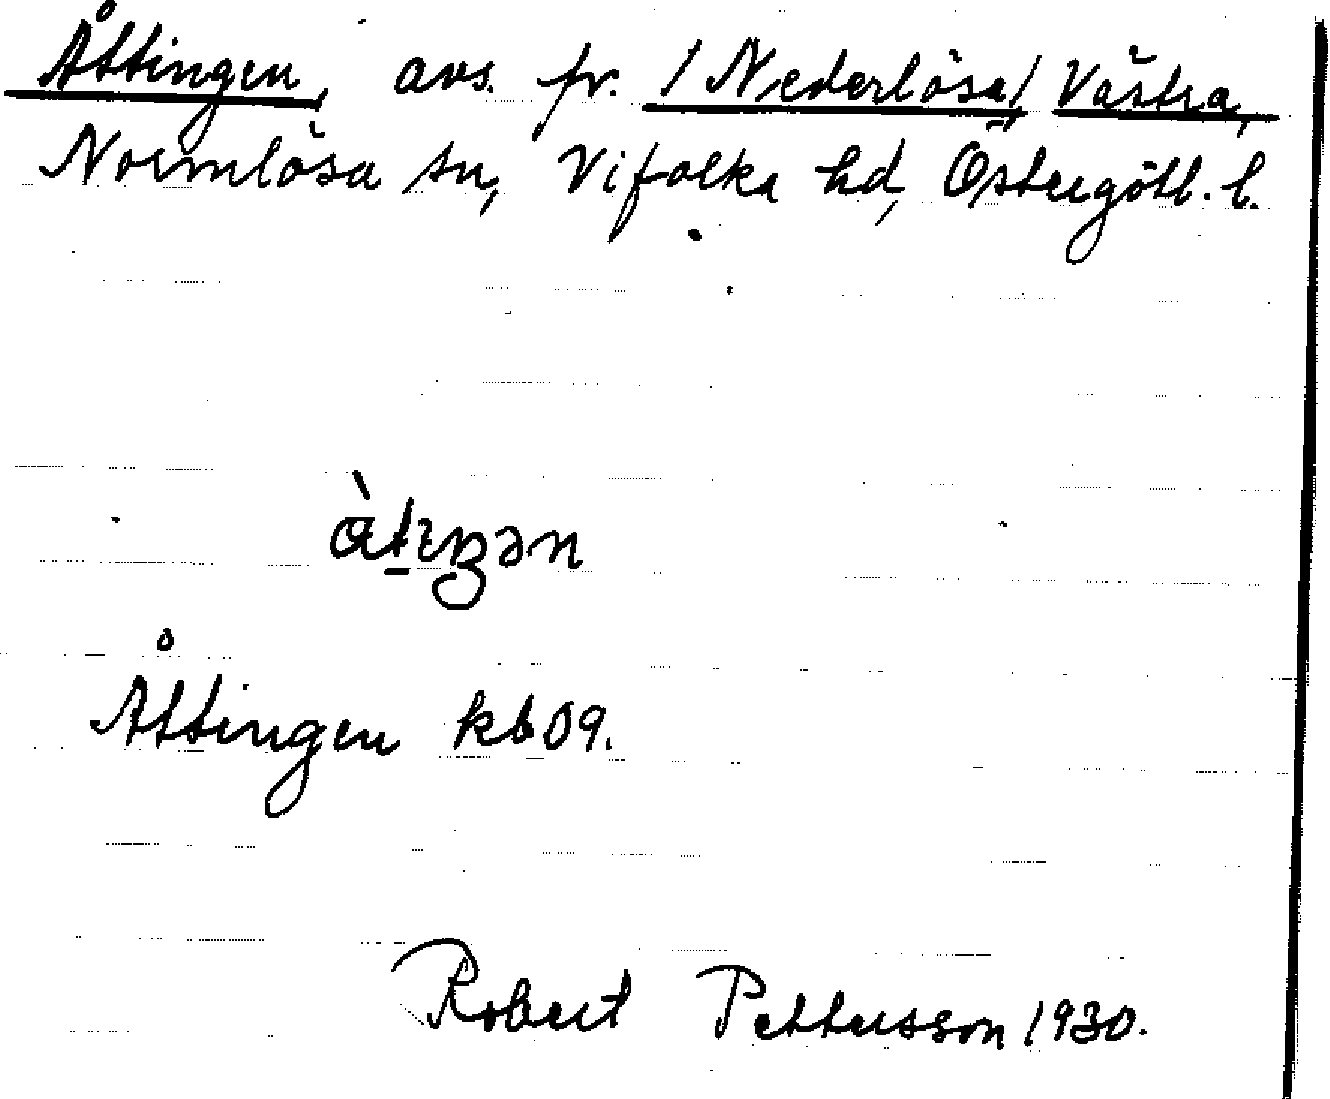 Åttingen, avs. fr. /Nederlösa/ Västra,
Normlösa sn, Vifolka hd, Östergötl. l.
Åttingen kb 09.
Robert Pettersson 1930.